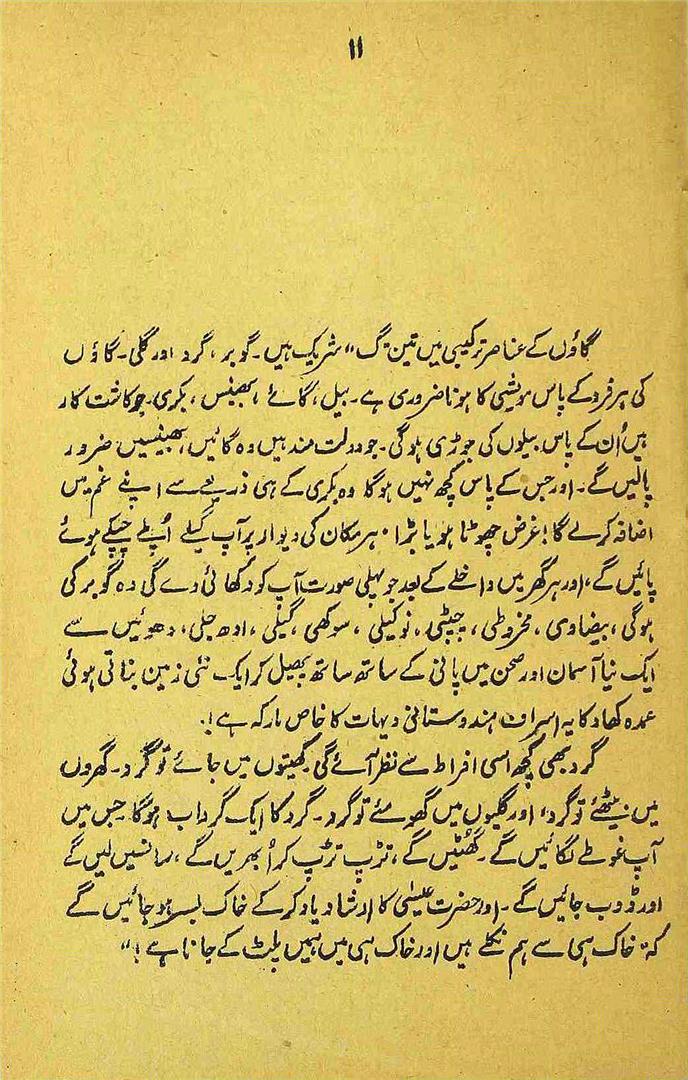 ۱۱
گاؤں کے عناصر ترکیبی میں تین "گ" شریک ہیں۔ گوبر، گرد اور گلی۔ گاؤں
کی ہر فرد کے پاس مویشی کا ہونا ضروری ہے۔ بیل، گائے، بھینس، بکری۔ جو کاشت کار
ہیں اُن کے پاس بیلوں کی جوڑی ہوگی۔ جو دولت مند ہیں وہ گائیں، بھینسیں ضرور
پالیں گے۔ اور جس کے پاس کچھ نہیں ہوگا وہ بکری کے ہی ذریعے سے اپنے غم میں
اضافہ کرلے گا! غرض چھوٹا ہو یا بڑا۔ ہر مکان کی دیوار پر آپ گیلے اُپلے چپکے ہوئے
پائیں گے، اور ہر گھر میں داخلے کے بعد جو پہلی صورت آپ کو دکھائی دے گی وہ گوبر کی
ہوگی، بیضاوی، مخروطی، چپٹی، نوکیلی، سوکھی، گیلی، ادھ جلی، دھوئیں سے
ایک نیا آسمان اور صحن میں پانی کے ساتھ ساتھ پھیل کر ایک نئی زمین بناتی ہوئی
عمدہ کھاد کا یہ اسراف ہندوستانی دیہات کا خاص مارکہ ہے!۔
گرد بھی کچھ اسی افراط سے نظر آئے گی۔ کھیتوں میں جائے تو گرد۔ گھروں
میں بیٹھئے تو گرد، اور گلیوں میں گھومئے تو گرد۔ گرد کا ایک گرداب ہوگا جس میں
آپ غوطے لگائیں گے۔ گھُٹیں گے، تڑپ تڑپ کر اُبھریں گے، سانسیں لیں گے
اور ڈوب جائیں گے۔ اور حضرت عیسٰی کا ارشاد یاد کرکے خاک بسر ہو جائیں گے
کہ "خاک ہی سے ہم نکلے ہیں اور خاک ہی میں ہمیں پلٹ کے جانا ہے!"